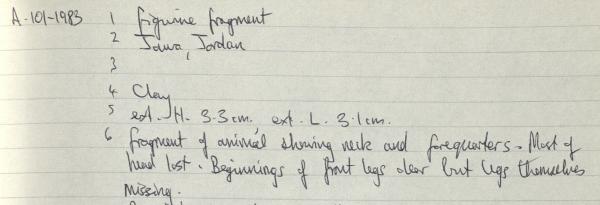 A.101-1983 1 figurine fragment
2 Jawa, Jordan
3
4 Clay
5 ext. H. 3.3cm. ext. L. 3.1cm.
6 fragment of animal showing neck and forequarters. Most of
head lost. Beginnings of front legs clear but legs themselves
missing.